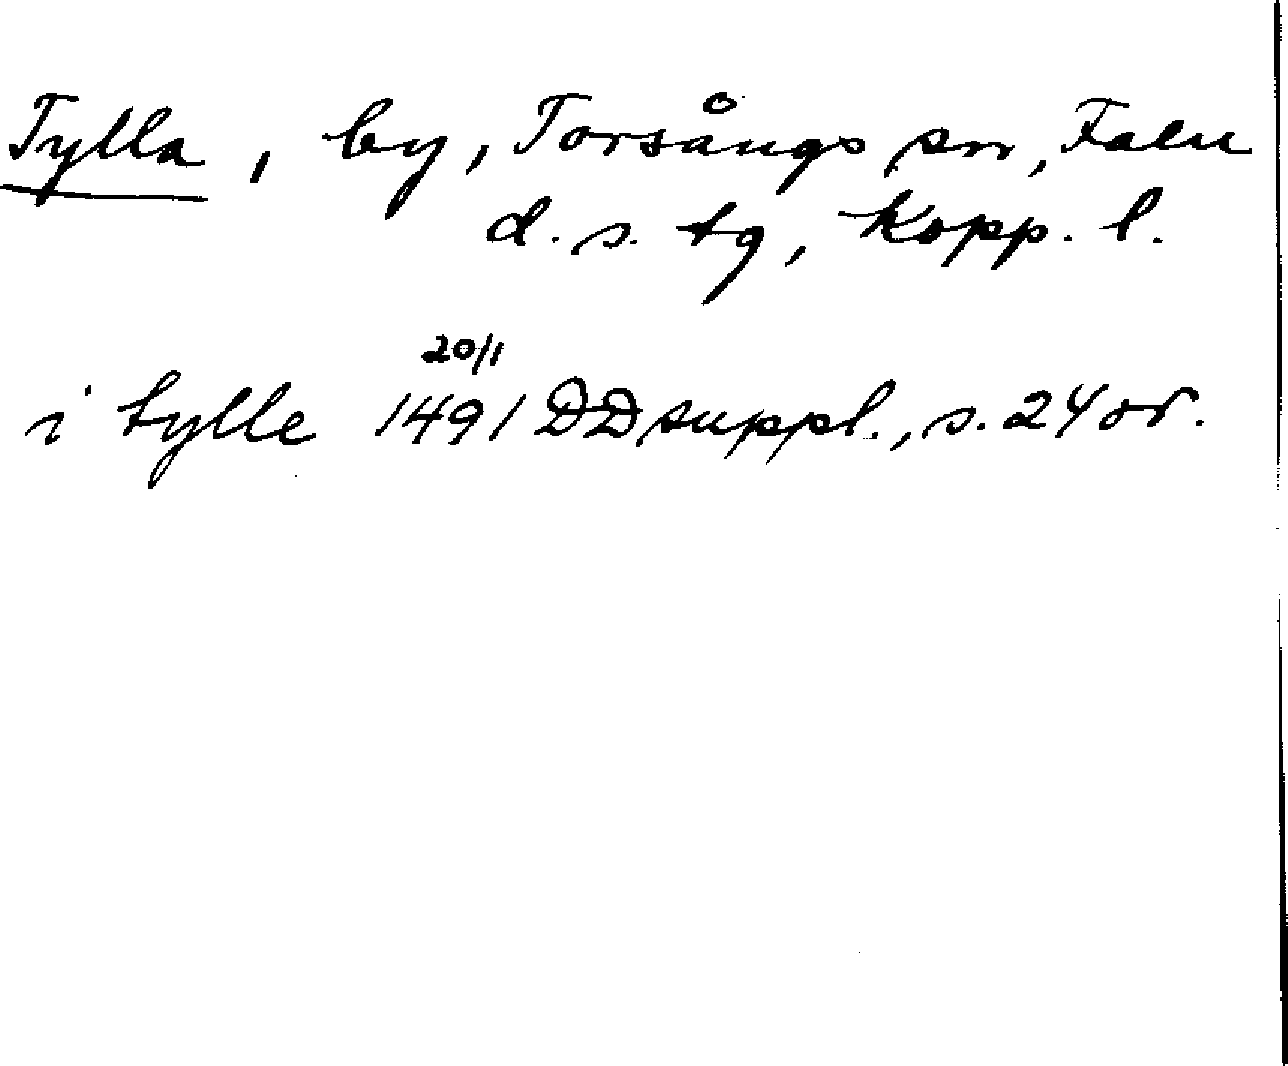 Tylla, by, Torsångs sn, Falu
d. s. tg, Kopp. l.
20/1
i tylle 1491 DD suppl., s. 24 or.